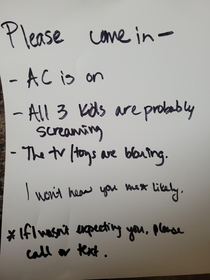 Please come in-
- AC is on
- All 3 kids are probably
screaming
- The tv/toys are blaring.
I won't hear you most likely.
* If I wasn't expecting you, please
call or text.